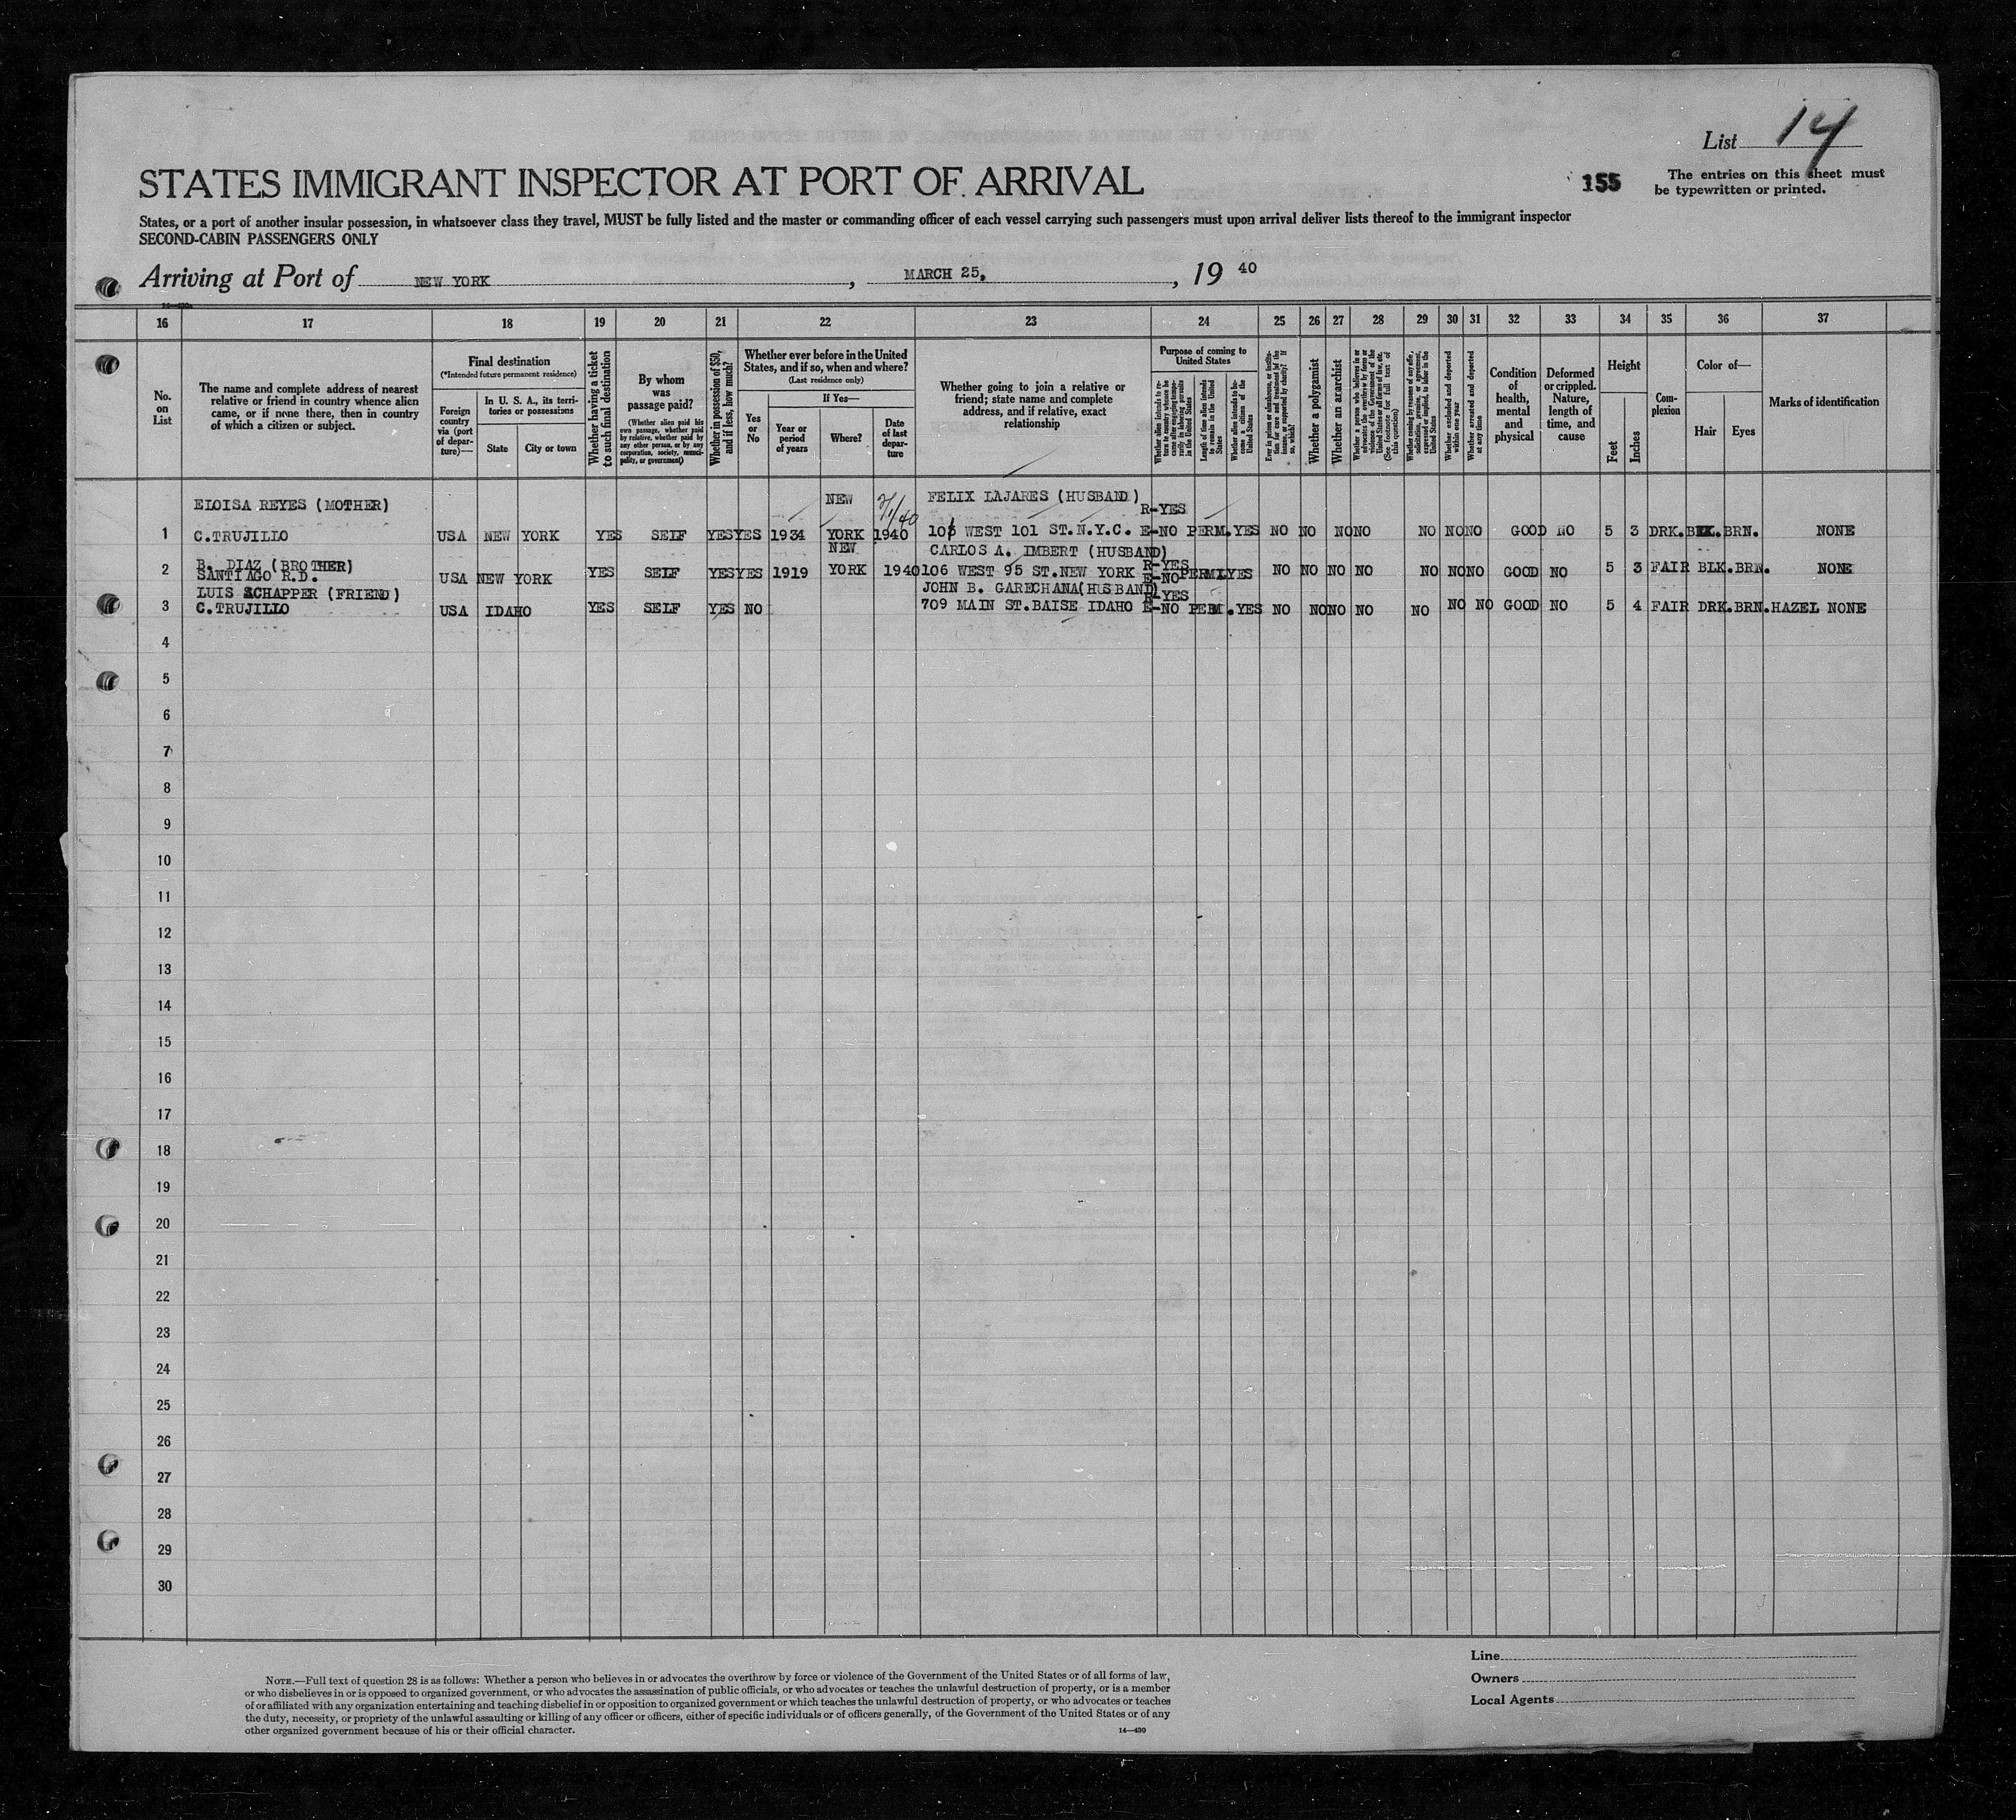 List 14
STATES IMMIGRANT INSPECTOR AT PORT OF ARRIVAL
155
The entries on this sheet must
be typewritten or printed.
States, or a port of another insular possession, in whatsoever class they travel, MUST be fully listed and the master or commanding officer of each vessel carrying such passengers must upon arrival deliver lists thereof to the immigrant inspector
SECOND-CABIN PASSENGERS ONLY
Arriving at Port of NEW YORK, MARCH 25, 19 40
16 17 18 19 20 21 22 23 24 25 26 27 28 29 30 31 32 33 34 35 36 37
No. on List
The name and complete address of nearest
relative or friend in country whence alien
came, or if none there, then in country
of which a citizen or subject.
Final destination
(*Intended future permanent residence)
Foreign country via (port of departure)—
In U. S. A., its territories or possessions
State
City or town
Whether having a ticket to such final destination
By whom was passage paid?
(Whether alien paid his own passage, whether paid by relative, whether paid by any other person, or by any corporation, society, municipality, or government)
Whether in possession of $50, and if less, how much?
Whether ever before in the United
States, and if so, when and where?
(Last residence only)
Yes or No
If Yes—
Year or period of years
Where?
Date of last departure
Whether going to join a relative or
friend; state name and complete
address, and if relative, exact
relationship
Purpose of coming to United States
Whether alien intends to return to country whence he came after engaging temporarily in laboring pursuits in the United States
Length of time alien intends to remain in the United States
Whether alien intends to become a citizen of the United States
Ever in prison or almshouse, or institution for care and treatment of the insane, or supported by charity? If so, which?
Whether a polygamist
Whether an anarchist
Whether a person who believes in or advocates the overthrow by force or violence of the Government of the United States or all forms of law, etc. (See footnote for full text of this question)
Whether coming by reason of any offer, solicitation, promise, or agreement, expressed or implied, to labor in the United States
Whether excluded and deported within one year
Whether arrested and deported at any time
Condition of health, mental and physical
Deformed or crippled. Nature, length of time, and cause
Height
Feet
Inches
Complexion
Color of—
Hair
Eyes
Marks of identification
ELOISA REYES (MOTHER) NEW 2/1/40 FELIX LAJARES (HUSBAND) R-YES
1 C.TRUJILLO USA NEW YORK YES SELF YES YES 1934 YORK 1940 WEST 101 ST.N.Y.C. E-NO PERM.YES NO NO NO NO NO NO NO GOOD NO 5 3 DRK. BLK. BRN. NONE
B. DIAZ (BROTHER) NEW CARLOS A. IMBERT (HUSBAND) R-YES
2 SANTIAGO R.D. USA NEW YORK YES SELF YES YES 1919 YORK 1940 106 WEST 95 ST.NEW YORK E-NO PERM.YES NO NO NO NO NO NO NO GOOD NO 5 3 FAIR BLK. BRN. NONE
LUIS SCHAPPER (FRIEND) JOHN B. GARECHANA (HUSBAND) R-YES
3 C.TRUJILLO USA IDAHO YES SELF YES NO 709 MAIN ST.BAISE IDAHO E-NO PERM.YES NO NO NO NO NO NO NO GOOD NO 5 4 FAIR DRK.BRN. HAZEL NONE
4
5
6
7
8
9
10
11
12
13
14
15
16
17
18
19
20
21
22
23
24
25
26
27
28
29
30
NOTE.—Full text of question 28 is as follows: Whether a person who believes in or advocates the overthrow by force or violence of the Government of the United States or of all forms of law,
or who disbelieves in or is opposed to organized government, or who advocates the assassination of public officials, or who advocates or teaches the unlawful destruction of property, or is a member
of or affiliated with any organization entertaining and teaching disbelief in or opposition to organized government or which teaches the unlawful destruction of property, or who advocates or teaches
the duty, necessity, or propriety of the unlawful assaulting or killing of any officer or officers, either of specific individuals or of officers generally, of the Government of the United States or of any
other organized government because of his or their official character.
14—430
Line
Owners
Local Agents